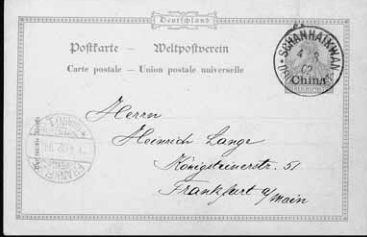 Deutschland
Postkarte — Weltpostverein
Carte postale — Union postale universelle
SCHANHAIKWAN
4
02
China
Herrn
Heinrich Lange
Königsteinerstr. 51
Frankfurt a/Main